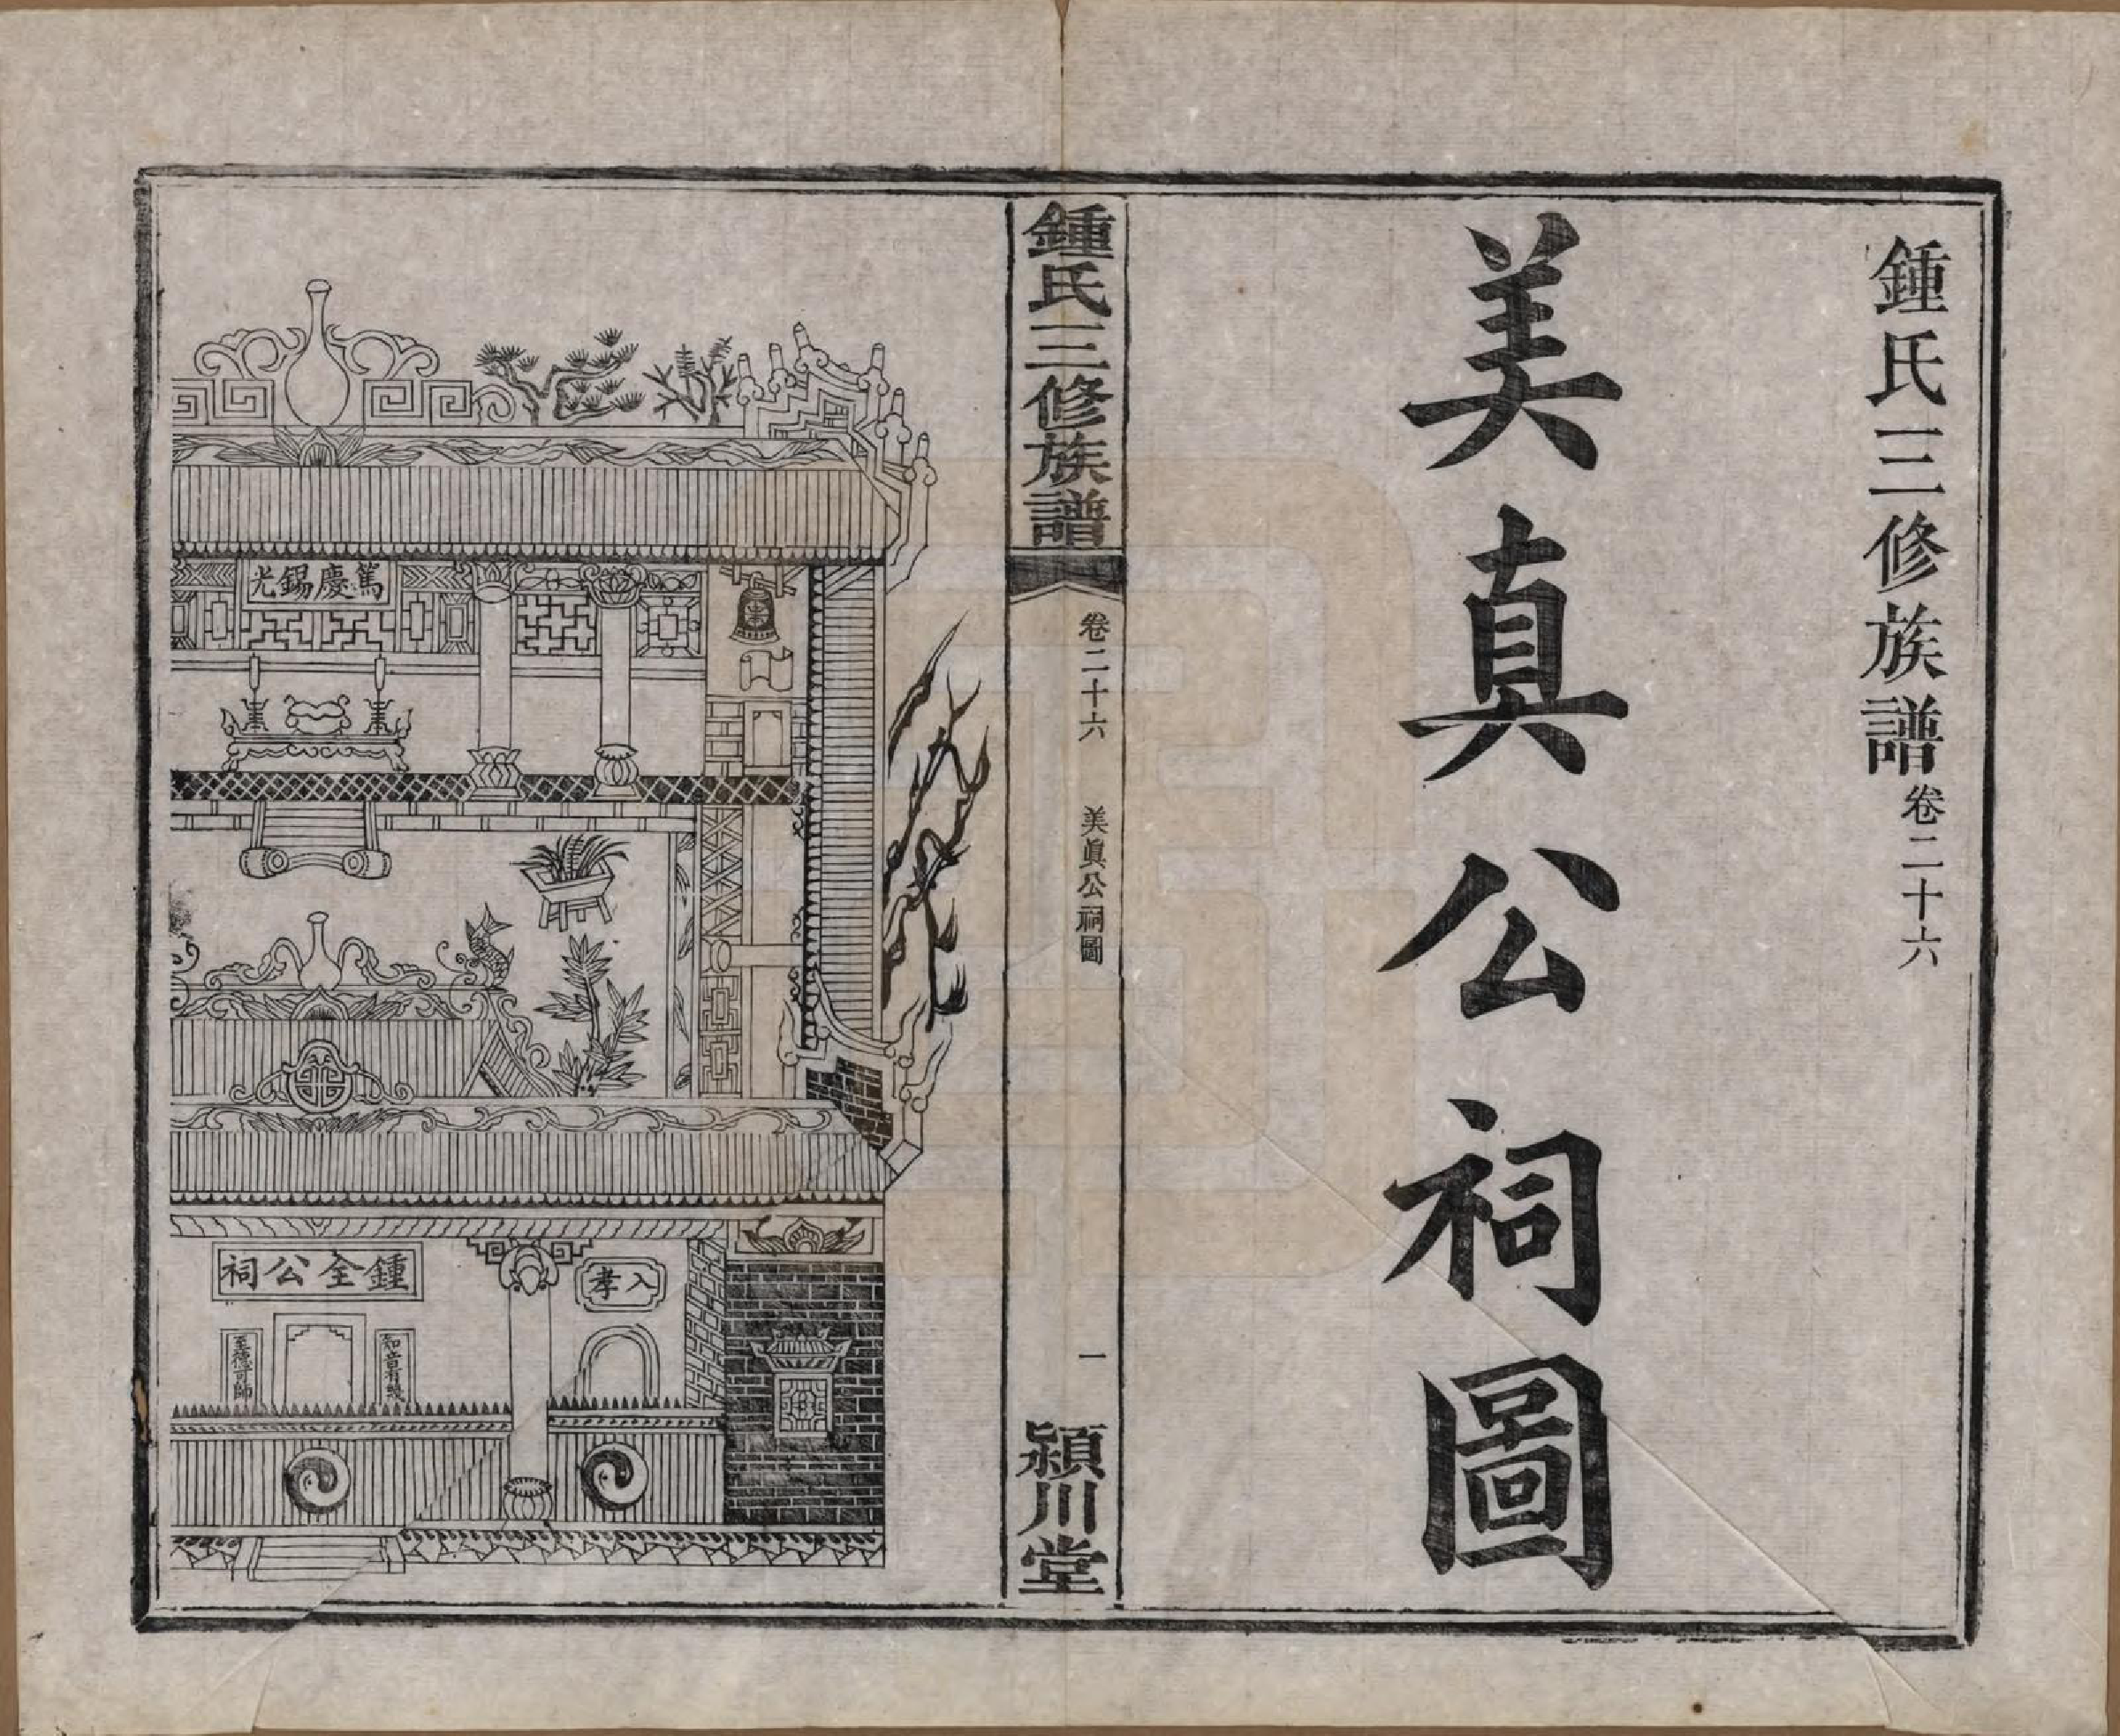 鍾氏三修族譜卷二十六
美真公祠圖
鍾氏三修族譜
卷二十六
美眞公祠圖
一
潁川堂
篤慶錫光
鍾全公祠
入孝
至德可師